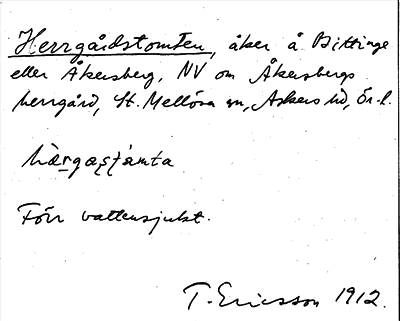 Herrgårdstomten, åker å Bittinge
eller Åkersberg, NV om Åkersbergs
herrgård, St. Mellösa sn, Askers hd, Ör. l.
hærgasṭamta
Förr vattensjukt.
T. Ericsson 1912.